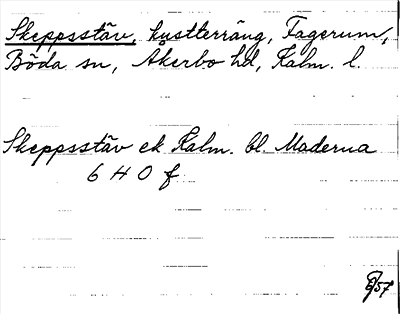 Skeppsstäv, kustterräng, Fagerum,
Böda sn, Åkerbo hd, Kalm. l.
Skeppsstäv ek Kalm. bl. Maderna
6 H 0 f